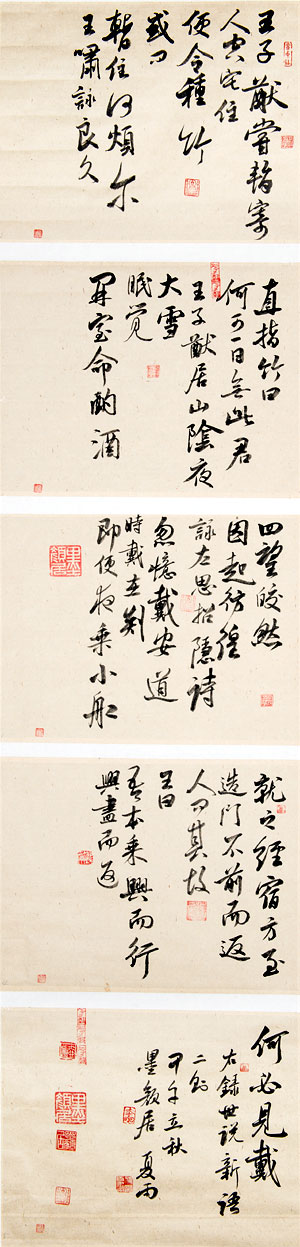 王子猷嘗暫寄
人空宅住
便令種竹
或问
暫住何煩尔
王嘯詠良久
直指竹曰
何可一日無此君
王子猷居山陰夜
大雪
眠觉
開室命酌酒
四望皎然
因起彷徨
詠左思招隱詩
忽憶戴安道
時戴在剡
即便夜乘小船
就之經宿方至
造门不前而返
人问其故
王曰
吾本乘興而行
興盡而返
何必見戴
右錄世說新語
二則
甲午立秋
夏雨